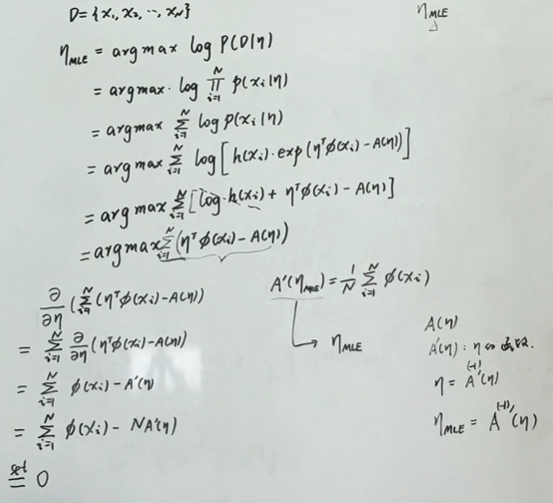 D = {x₁, x₂, ⋯, x_N}
η_MLE
η_MLE = argmax log P(D|η)
= argmax · log ∏_{i=1}^{N} p(x_i|η)
= argmax ∑_{i=1}^{N} log p(x_i|η)
= argmax ∑_{i=1}^{N} log [h(x_i)·exp(η^T φ(x_i) − A(η))]
= argmax ∑_{i=1}^{N} [log·h(x_i) + η^T φ(x_i) − A(η)]
= argmax ∑_{i=1}^{N} (η^T φ(x_i) − A(η))
∂/∂η (∑_{i=1}^{N} (η^T φ(x_i) − A(η))
= ∑_{i=1}^{N} ∂/∂η (η^T φ(x_i) − A(η))
= ∑_{i=1}^{N} φ(x_i) − A'(η)
= ∑_{i=1}^{N} φ(x_i) − NA'(η)
set = 0
A'(η_MLE) = 1/N ∑_{i=1}^{N} φ(x_i)
→ η_MLE
A(η)
A'(η) : η の函数.
η = A^{(-1)'}(η)
η_MLE = A^{(-1)'}(η)